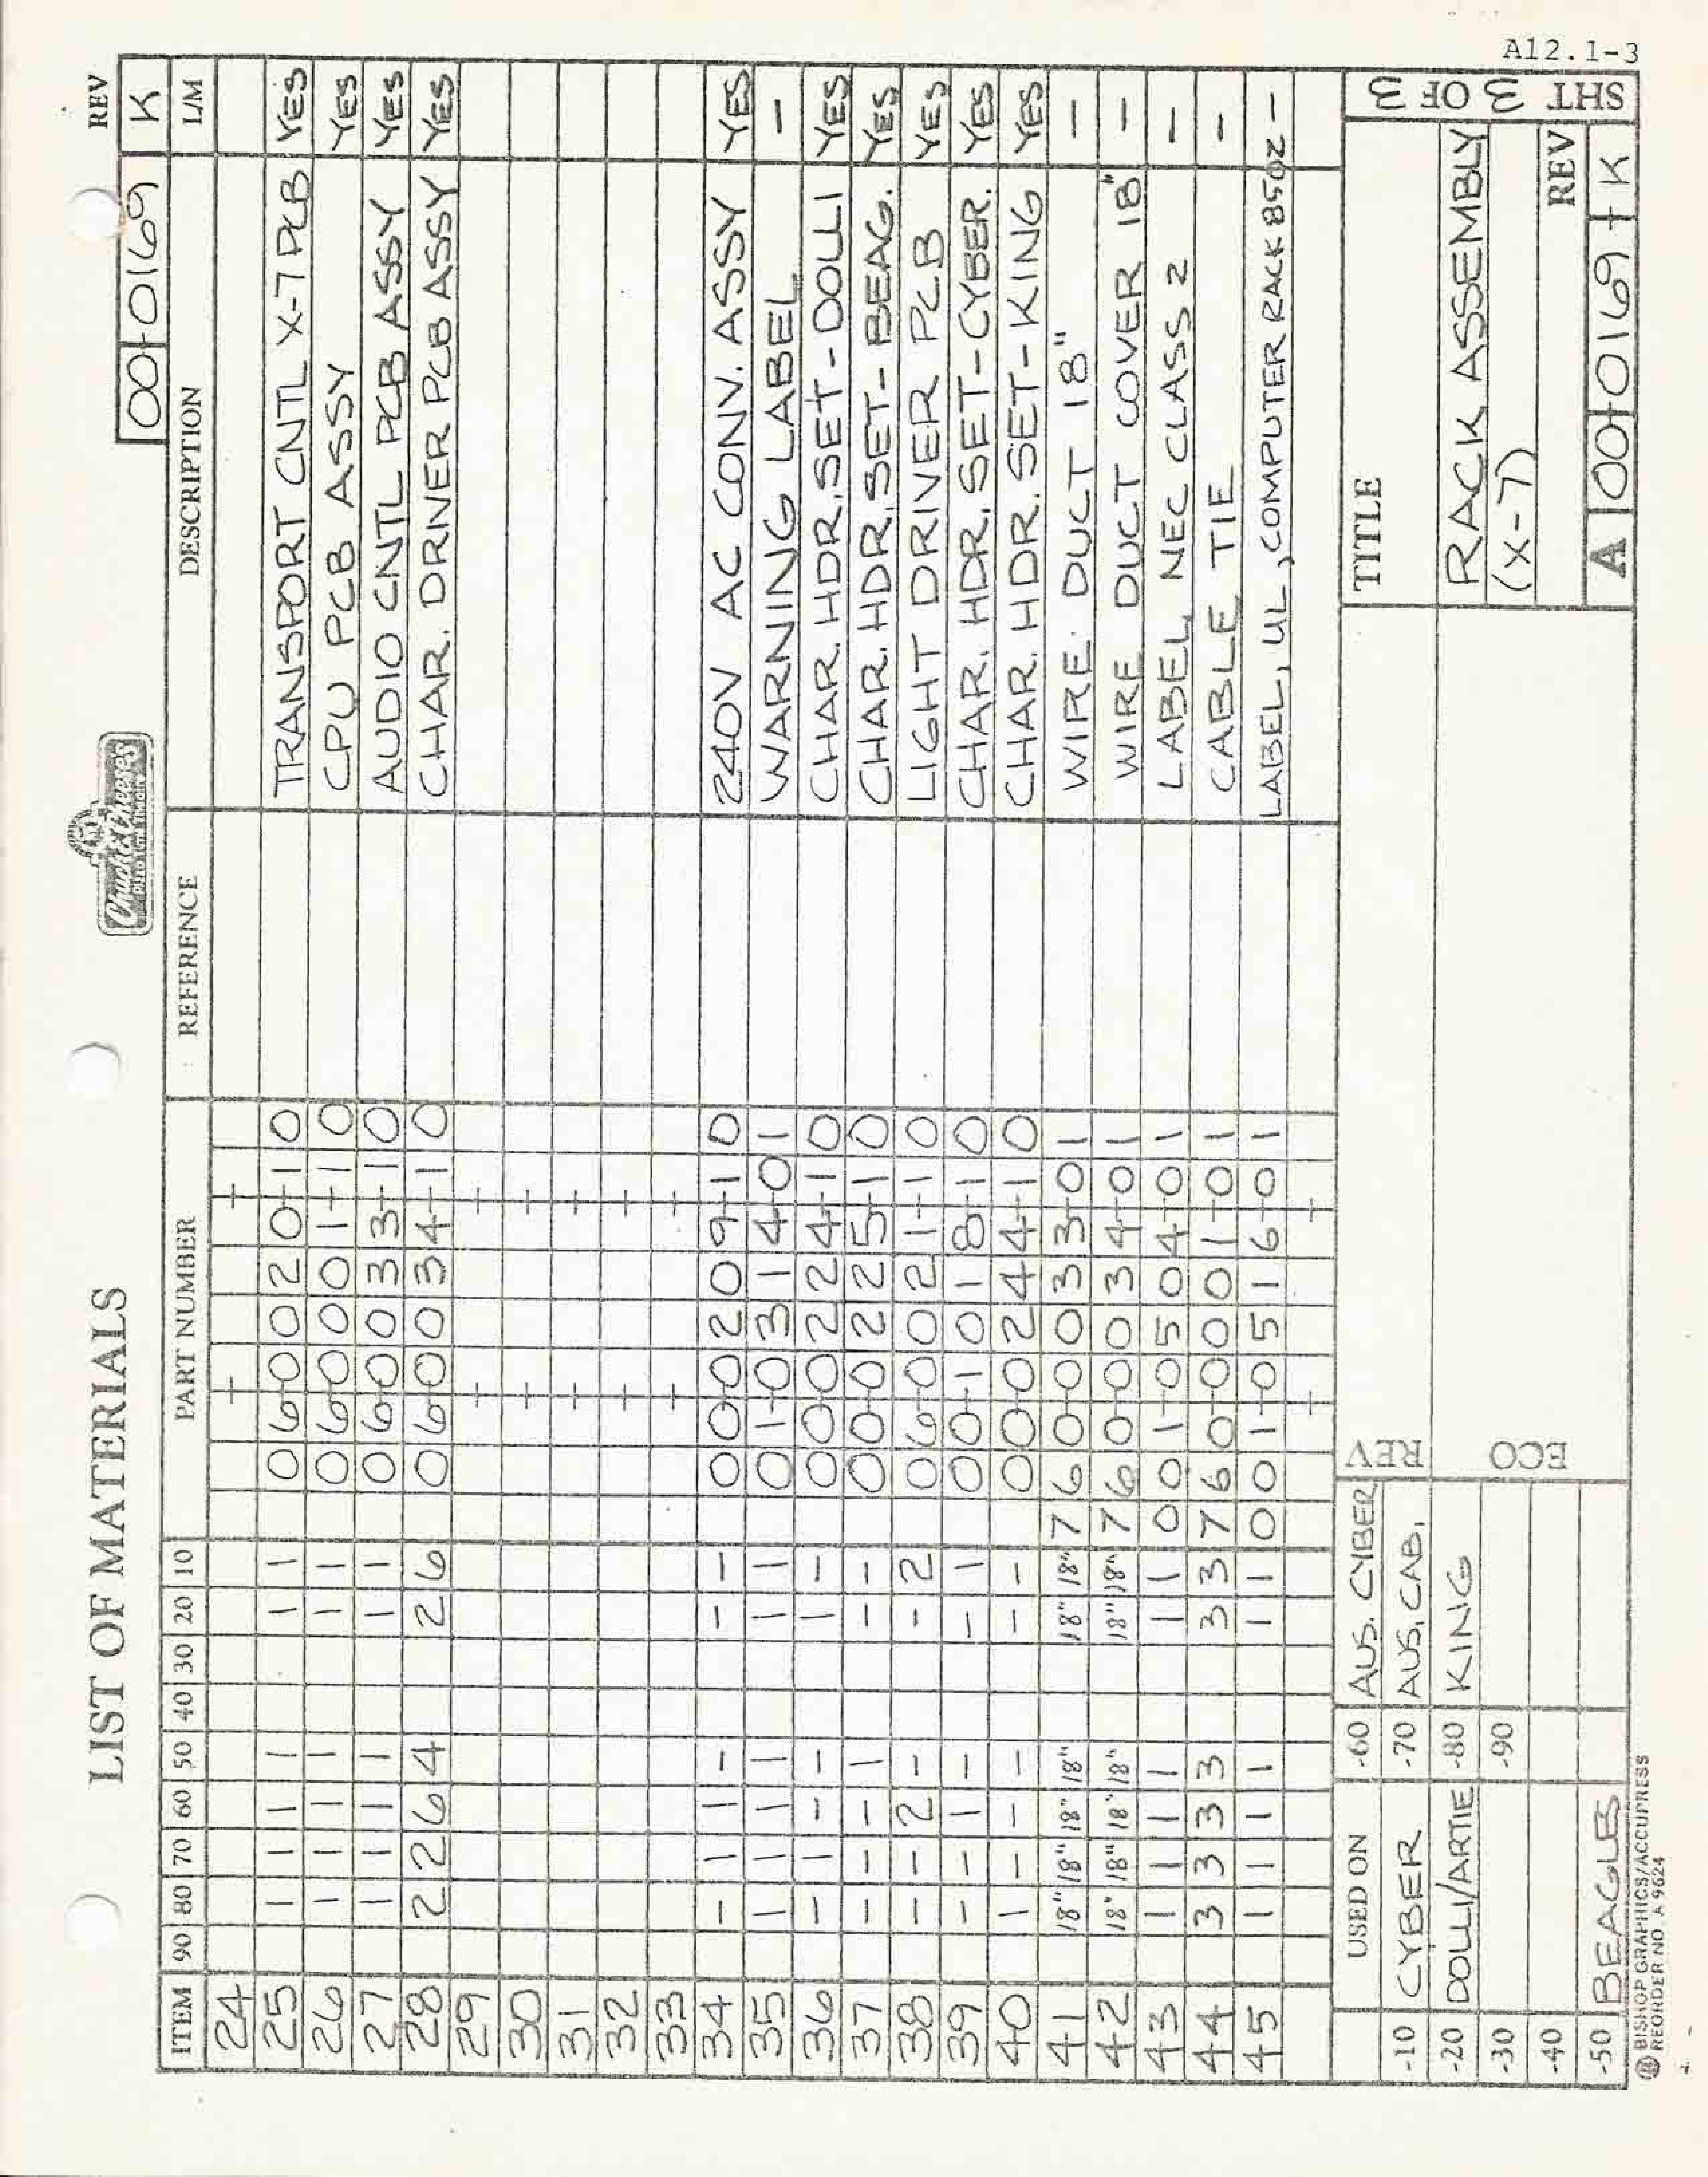 A12.1-3
LIST OF MATERIALS
Chuck E. Cheese's
PIZZA TIME THEATRE
REV
00-0169 K
ITEM 90 80 70 60 50 40 30 20 10 PART NUMBER REFERENCE DESCRIPTION L/M
24
25 1 1 1 1 1 1 06-0020-10 TRANSPORT CNTL X-7 PCB YES
26 1 1 1 1 1 1 06-0001-10 CPU PCB ASSY YES
27 1 1 1 1 1 1 06-0033-10 AUDIO CNTL PCB ASSY YES
28 2 2 6 4 2 6 06-0034-10 CHAR. DRIVER PCB ASSY YES
29
30
31
32
33
34 - 1 1 - - - 00-0209-10 240V AC CONV. ASSY YES
35 1 1 1 1 1 1 01-0314-01 WARNING LABEL -
36 - 1 - - 1 - 00-0224-10 CHAR. HDR. SET - DOLLI YES
37 - - - 1 - - 00-0225-10 CHAR. HDR. SET - BEAG. YES
38 - - 2 - - 2 06-0021-10 LIGHT DRIVER PCB YES
39 - - 1 - - 1 00-1018-10 CHAR. HDR. SET - CYBER. YES
40 1 - - - - - 00-0244-10 CHAR. HDR. SET - KING YES
41 18" 18" 18" 18" 18" 18" 760-0033-01 WIRE DUCT 18" -
42 18" 18" 18" 18" 18" 18" 760-0034-01 WIRE DUCT COVER 18" -
43 1 1 1 1 1 1 001-0504-01 LABEL, NEC CLASS 2 -
44 3 3 3 3 3 3 760-0001-01 CABLE TIE -
45 1 1 1 1 1 1 001-0516-01 LABEL, UL, COMPUTER RACK 850Z -
USED ON -60 AUS. CYBER REV TITLE
-10 CYBER -70 AUS. CAB.
-20 DOLLI/ARTIE -80 KING RACK ASSEMBLY
-30 -90 ECO (X-7)
-40 REV
-50 BEAGLES A 00-0169 - K
SHT 3 OF 3
BISHOP GRAPHICS/ACCUPRESS
REORDER NO. A 9624